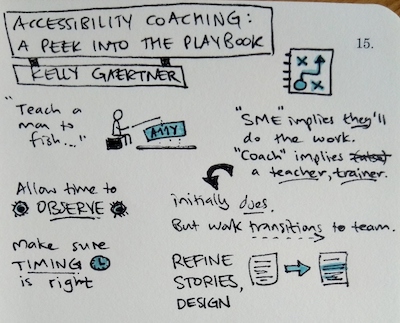 ACCESSIBILITY COACHING:
A PEEK INTO THE PLAYBOOK
KELLY GAERTNER
15.
"Teach a
man to
fish..."
A11Y
"SME" implies they'll
do the work.
"Coach" implies (also)
a teacher, trainer.
Allow time to
OBSERVE
initially does.
But work transitions to team.
make sure
TIMING
is right
REFINE
STORIES,
DESIGN